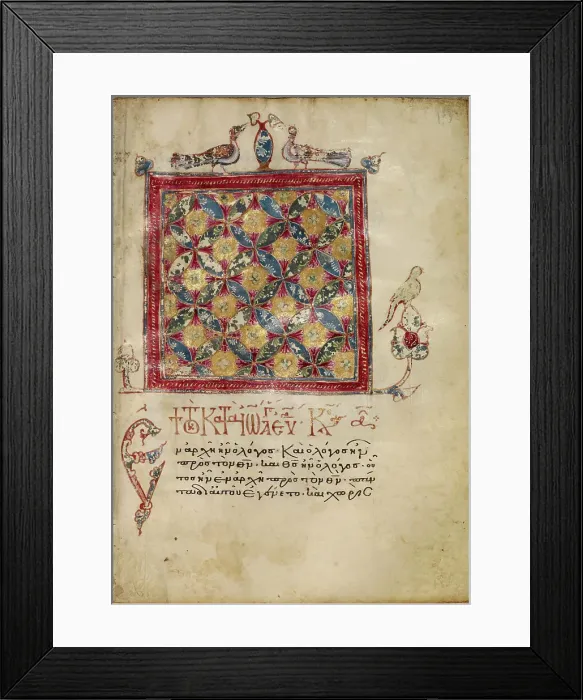 + τὸ κατὰ ἰω εὐα. Κε α
ἐν ἀρχῆ ἦν ὁ λόγος· καὶ ὁ λόγος ἦν
πρὸς τὸν θν· καὶ θς ἦν ὁ λόγος· οὗ
τος ἦν ἐν ἀρχῆ πρὸς τὸν θν· πάν
τα δι αὐτοῦ ἐγένετο· καὶ χωρὶς